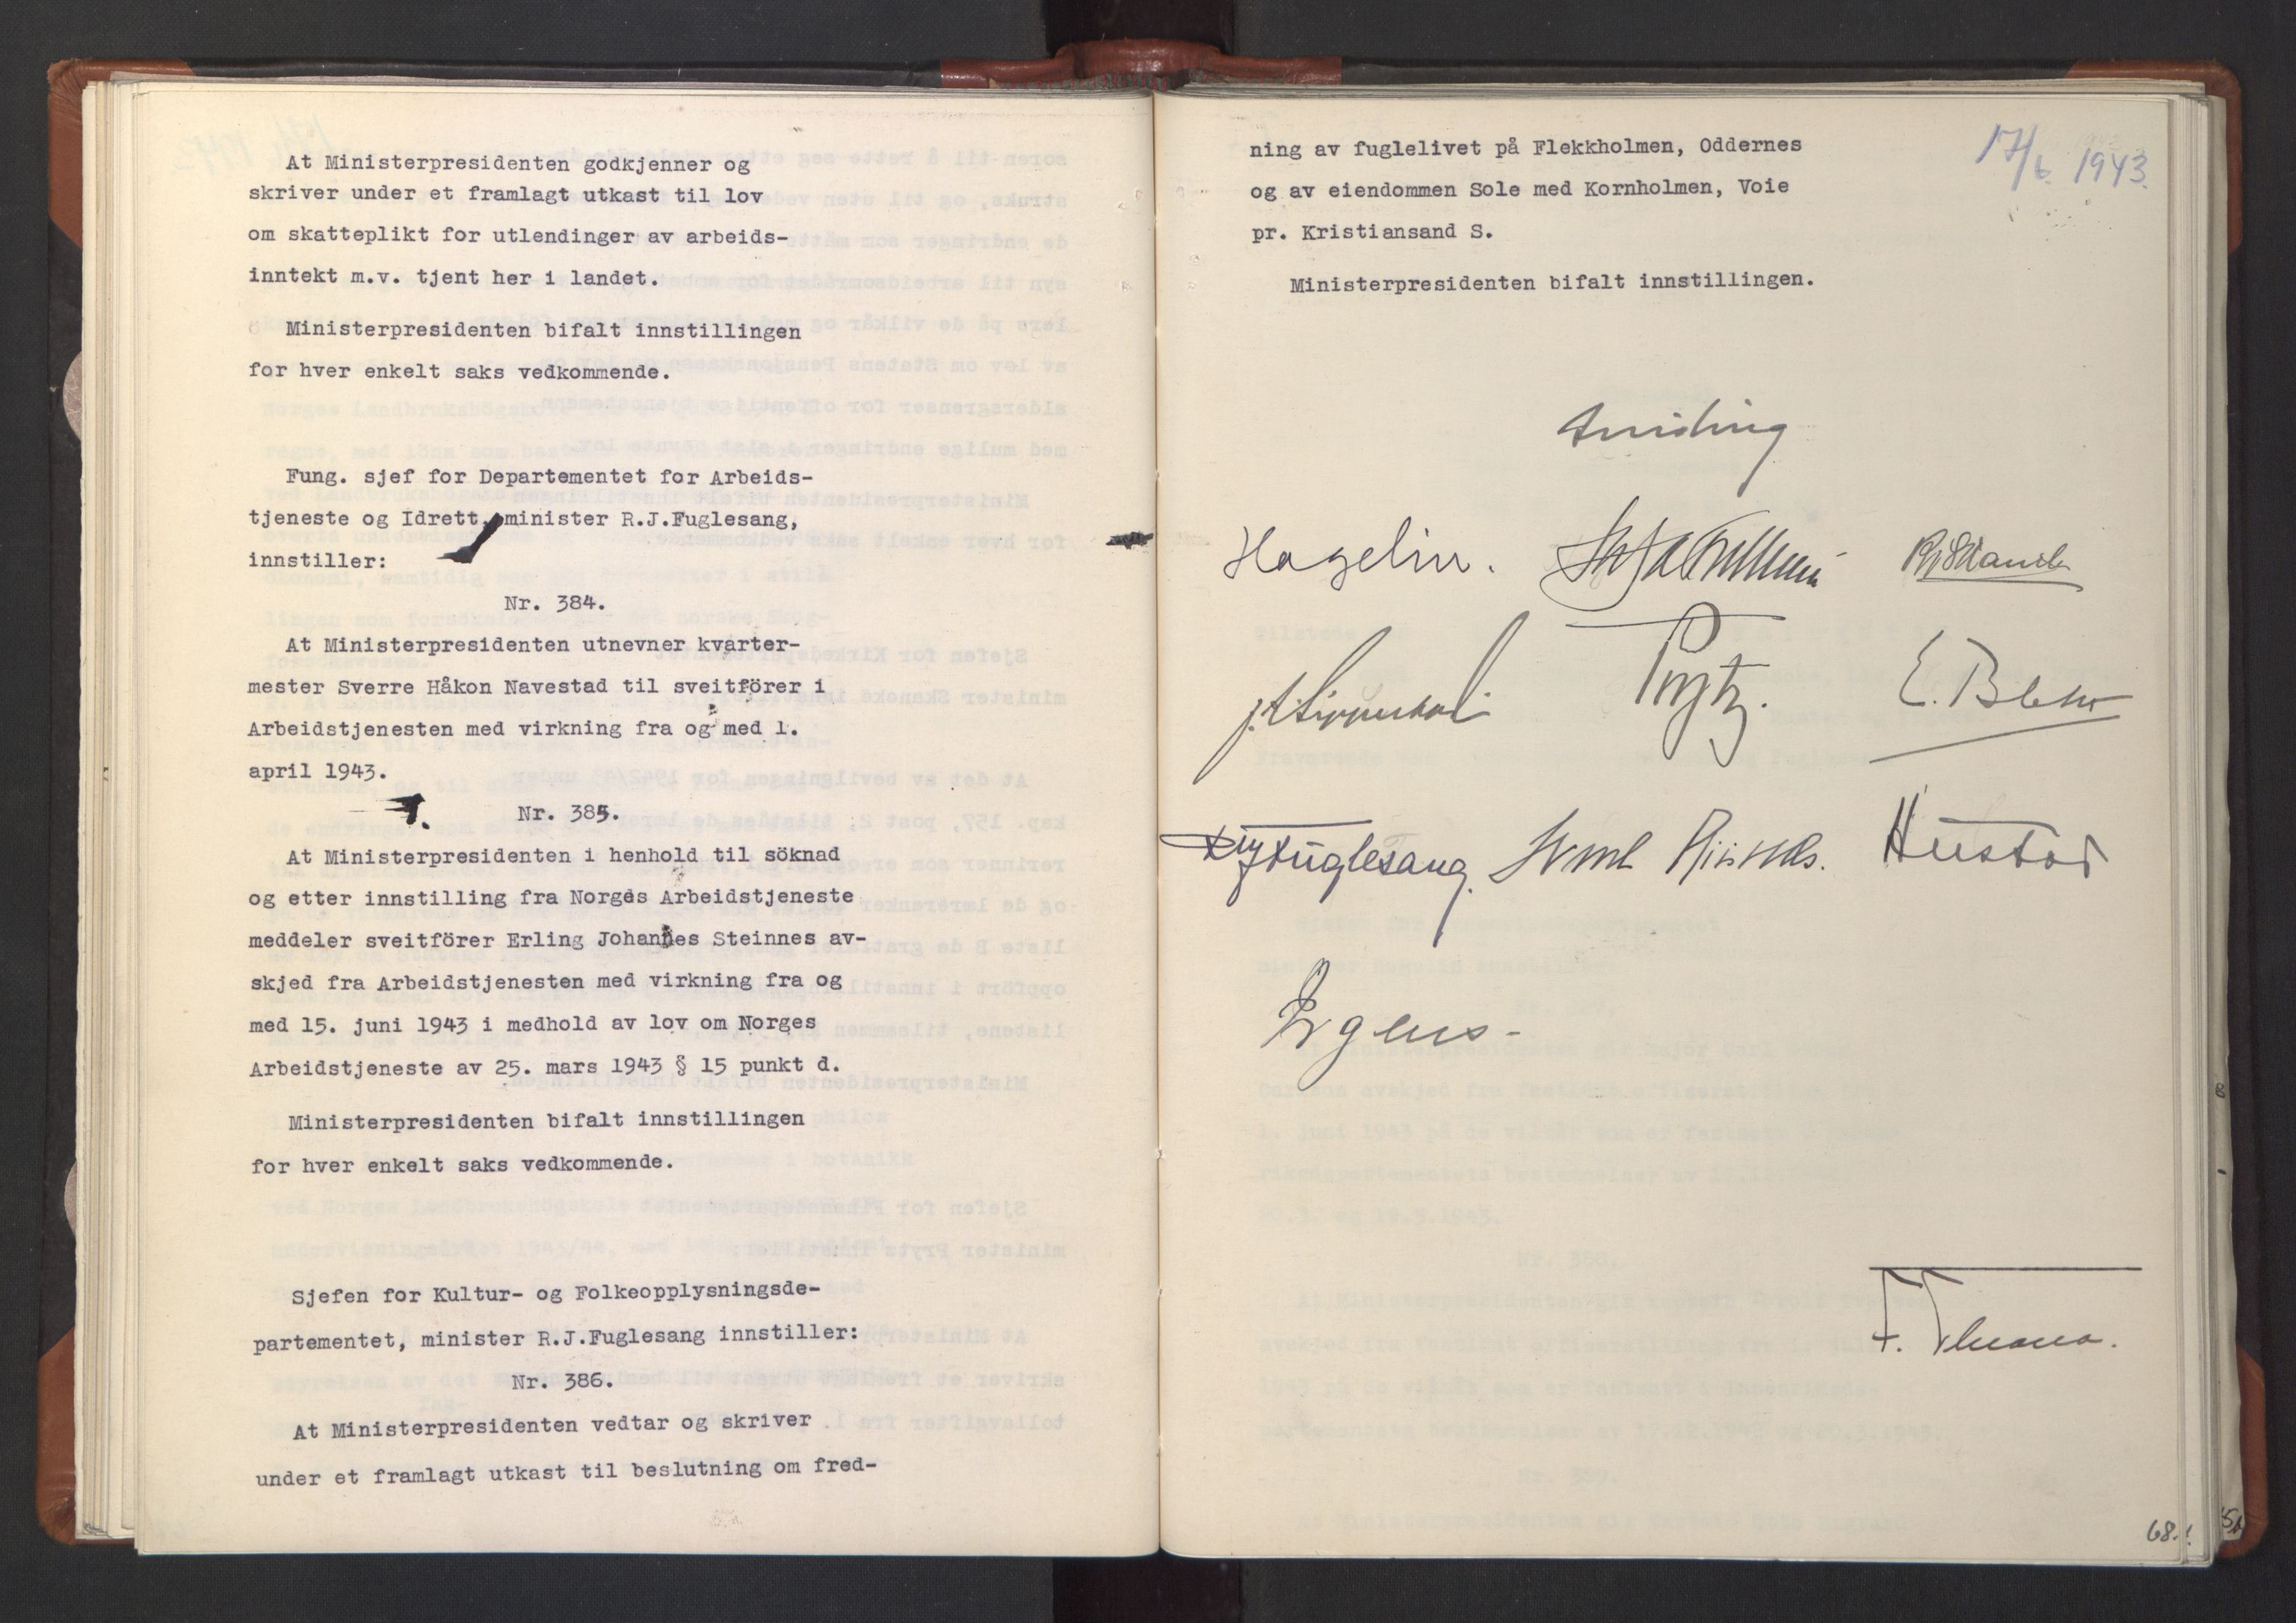 At Ministerpresidenten godkjenner og
skriver under et framlagt utkast til lov
om skatteplikt for utlendinger av arbeids-
inntekt m.v. tjent her i landet.
Ministerpresidenten bifalt innstillingen
for hver enkelt saks vedkommende.
Fung. sjef for Departementet for Arbeids-
tjeneste og Idrett, minister R.J.Fuglesang,
innstiller:
Nr. 384.
At Ministerpresidenten utnevner kvarter-
mester Sverre Håkon Navestad til sveitförer i
Arbeidstjenesten med virkning fra og med 1.
april 1943.
Nr. 385.
At Ministerpresidenten i henhold til söknad
og etter innstilling fra Norges Arbeidstjeneste
meddeler sveitförer Erling Johannes Steinnes av-
skjed fra Arbeidstjenesten med virkning fra og
med 15. juni 1943 i medhold av lov om Norges
Arbeidstjeneste av 25. mars 1943 § 15 punkt d.
Ministerpresidenten bifalt innstillingen
for hver enkelt saks vedkommende.
Sjefen for Kultur- og Folkeopplysningsde-
partementet, minister R.J.Fuglesang innstiller:
Nr. 386.
At Ministerpresidenten vedtar og skriver
under et framlagt utkast til beslutning om fred-
17/6 1943.
ning av fuglelivet på Flekkholmen, Oddernes
og av eiendommen Sole med Kornholmen, Voie
pr. Kristiansand S.
Ministerpresidenten bifalt innstillingen.
Quisling
Hagelin.
Prytz.
Fuglesang. Sverre Riisnæs. Hustad
Irgens-
68.